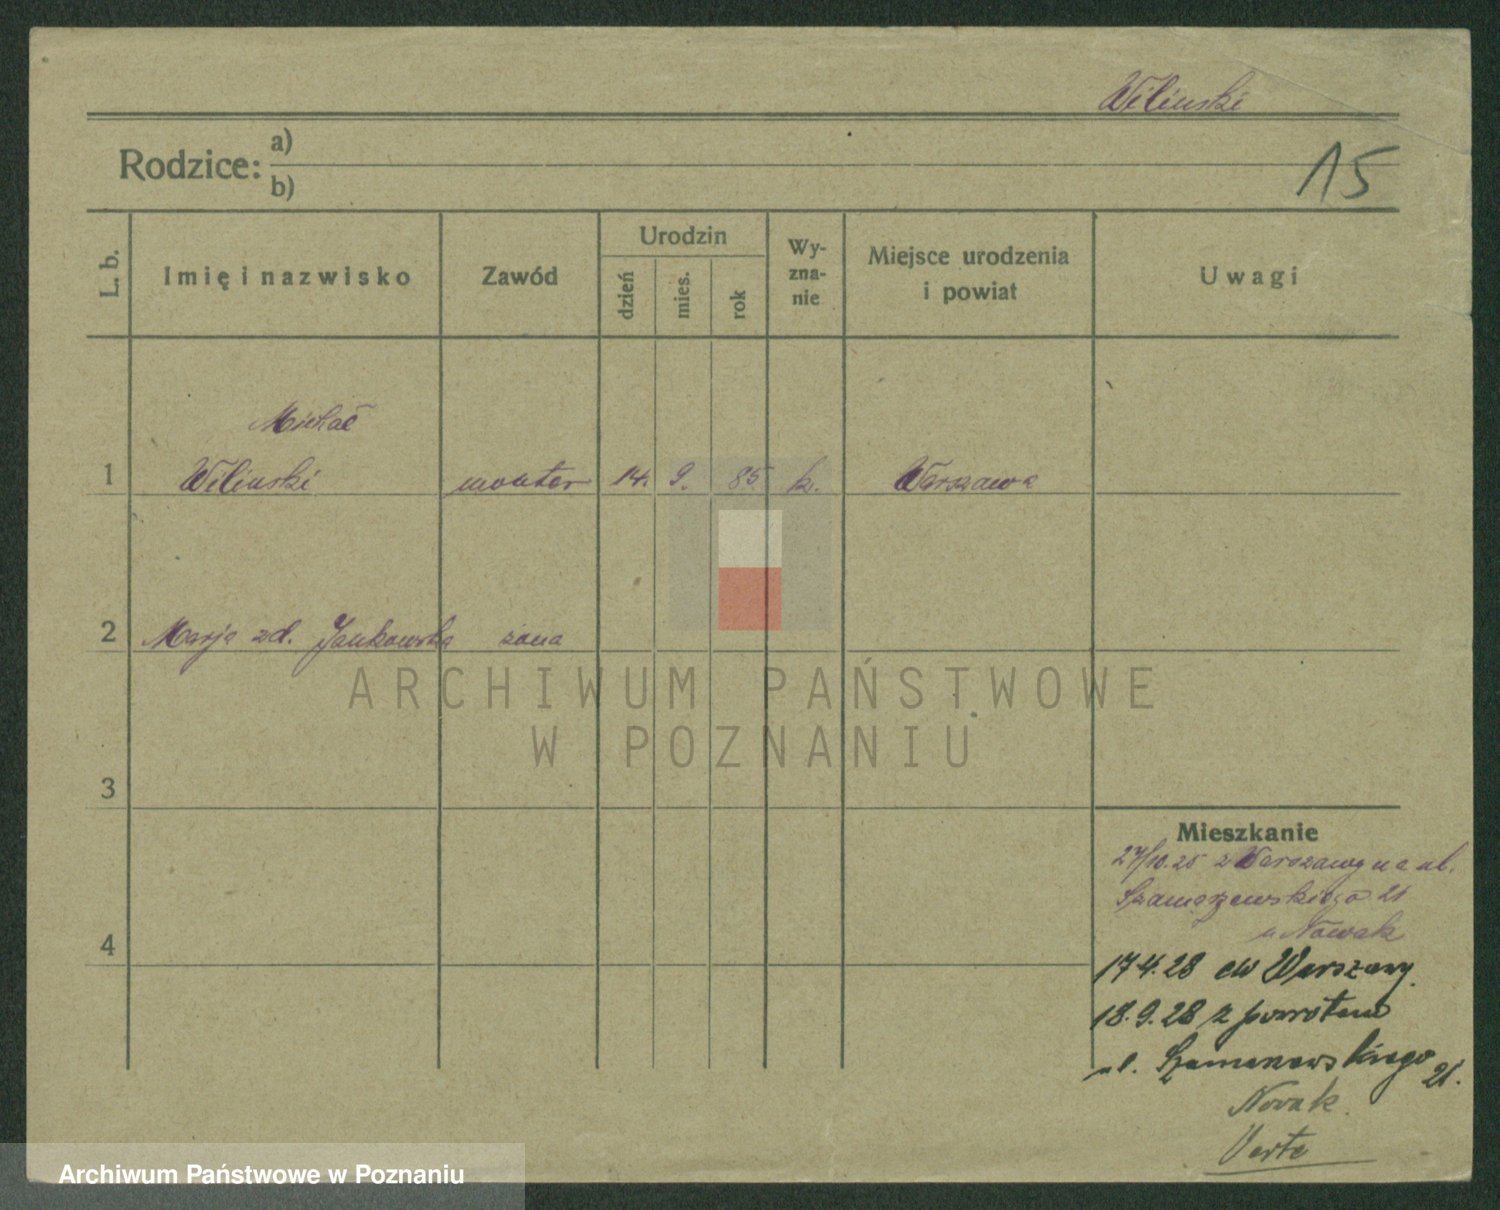 Wilinski
Rodzice: a)
b)
15
L. b.
Imię i nazwisko
Zawód
Urodzin
dzień
mies.
rok
Wy-
zna-
nie
Miejsce urodzenia
i powiat
Uwagi
Michał
1 Wilinski monter 14. 9. 85 k. Warszawa
2 Marja zd. Jankowska żona
3
4
Mieszkanie
27/10.25 z Warszawy na ul.
Szamarzewskiego 21
u Nowak
17.4.28 do Warszawy.
18.9.28 z powrotem
ul. Szamarzewskiego 21.
Nowak.
Verte
ARCHIWUM PAŃSTWOWE
W POZNANIU
Archiwum Państwowe w Poznaniu